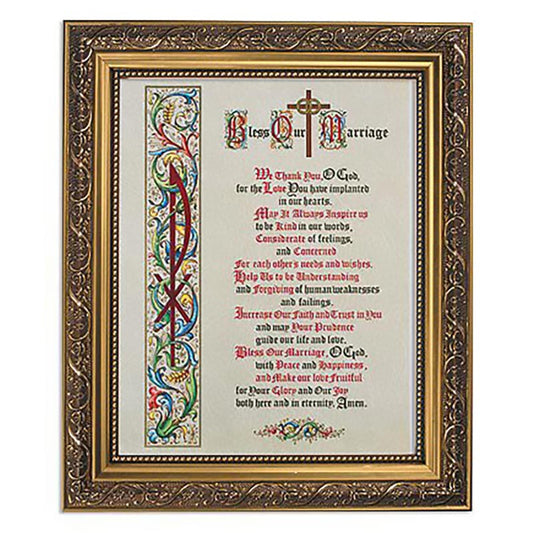 Bless Our Marriage
We Thank You, O God,
for the Love You have implanted
in our hearts.
May It Always Inspire us
to be Kind in our words,
Considerate of feelings,
and Concerned
For each other's needs and wishes.
Help Us to be Understanding
and Forgiving of human weaknesses
and failings.
Increase Our Faith and Trust in You
and may Your Prudence
guide our life and love.
Bless Our Marriage, O God,
with Peace and Happiness,
and Make our love Fruitful
for Your Glory and Our Joy
both here and in eternity. Amen.